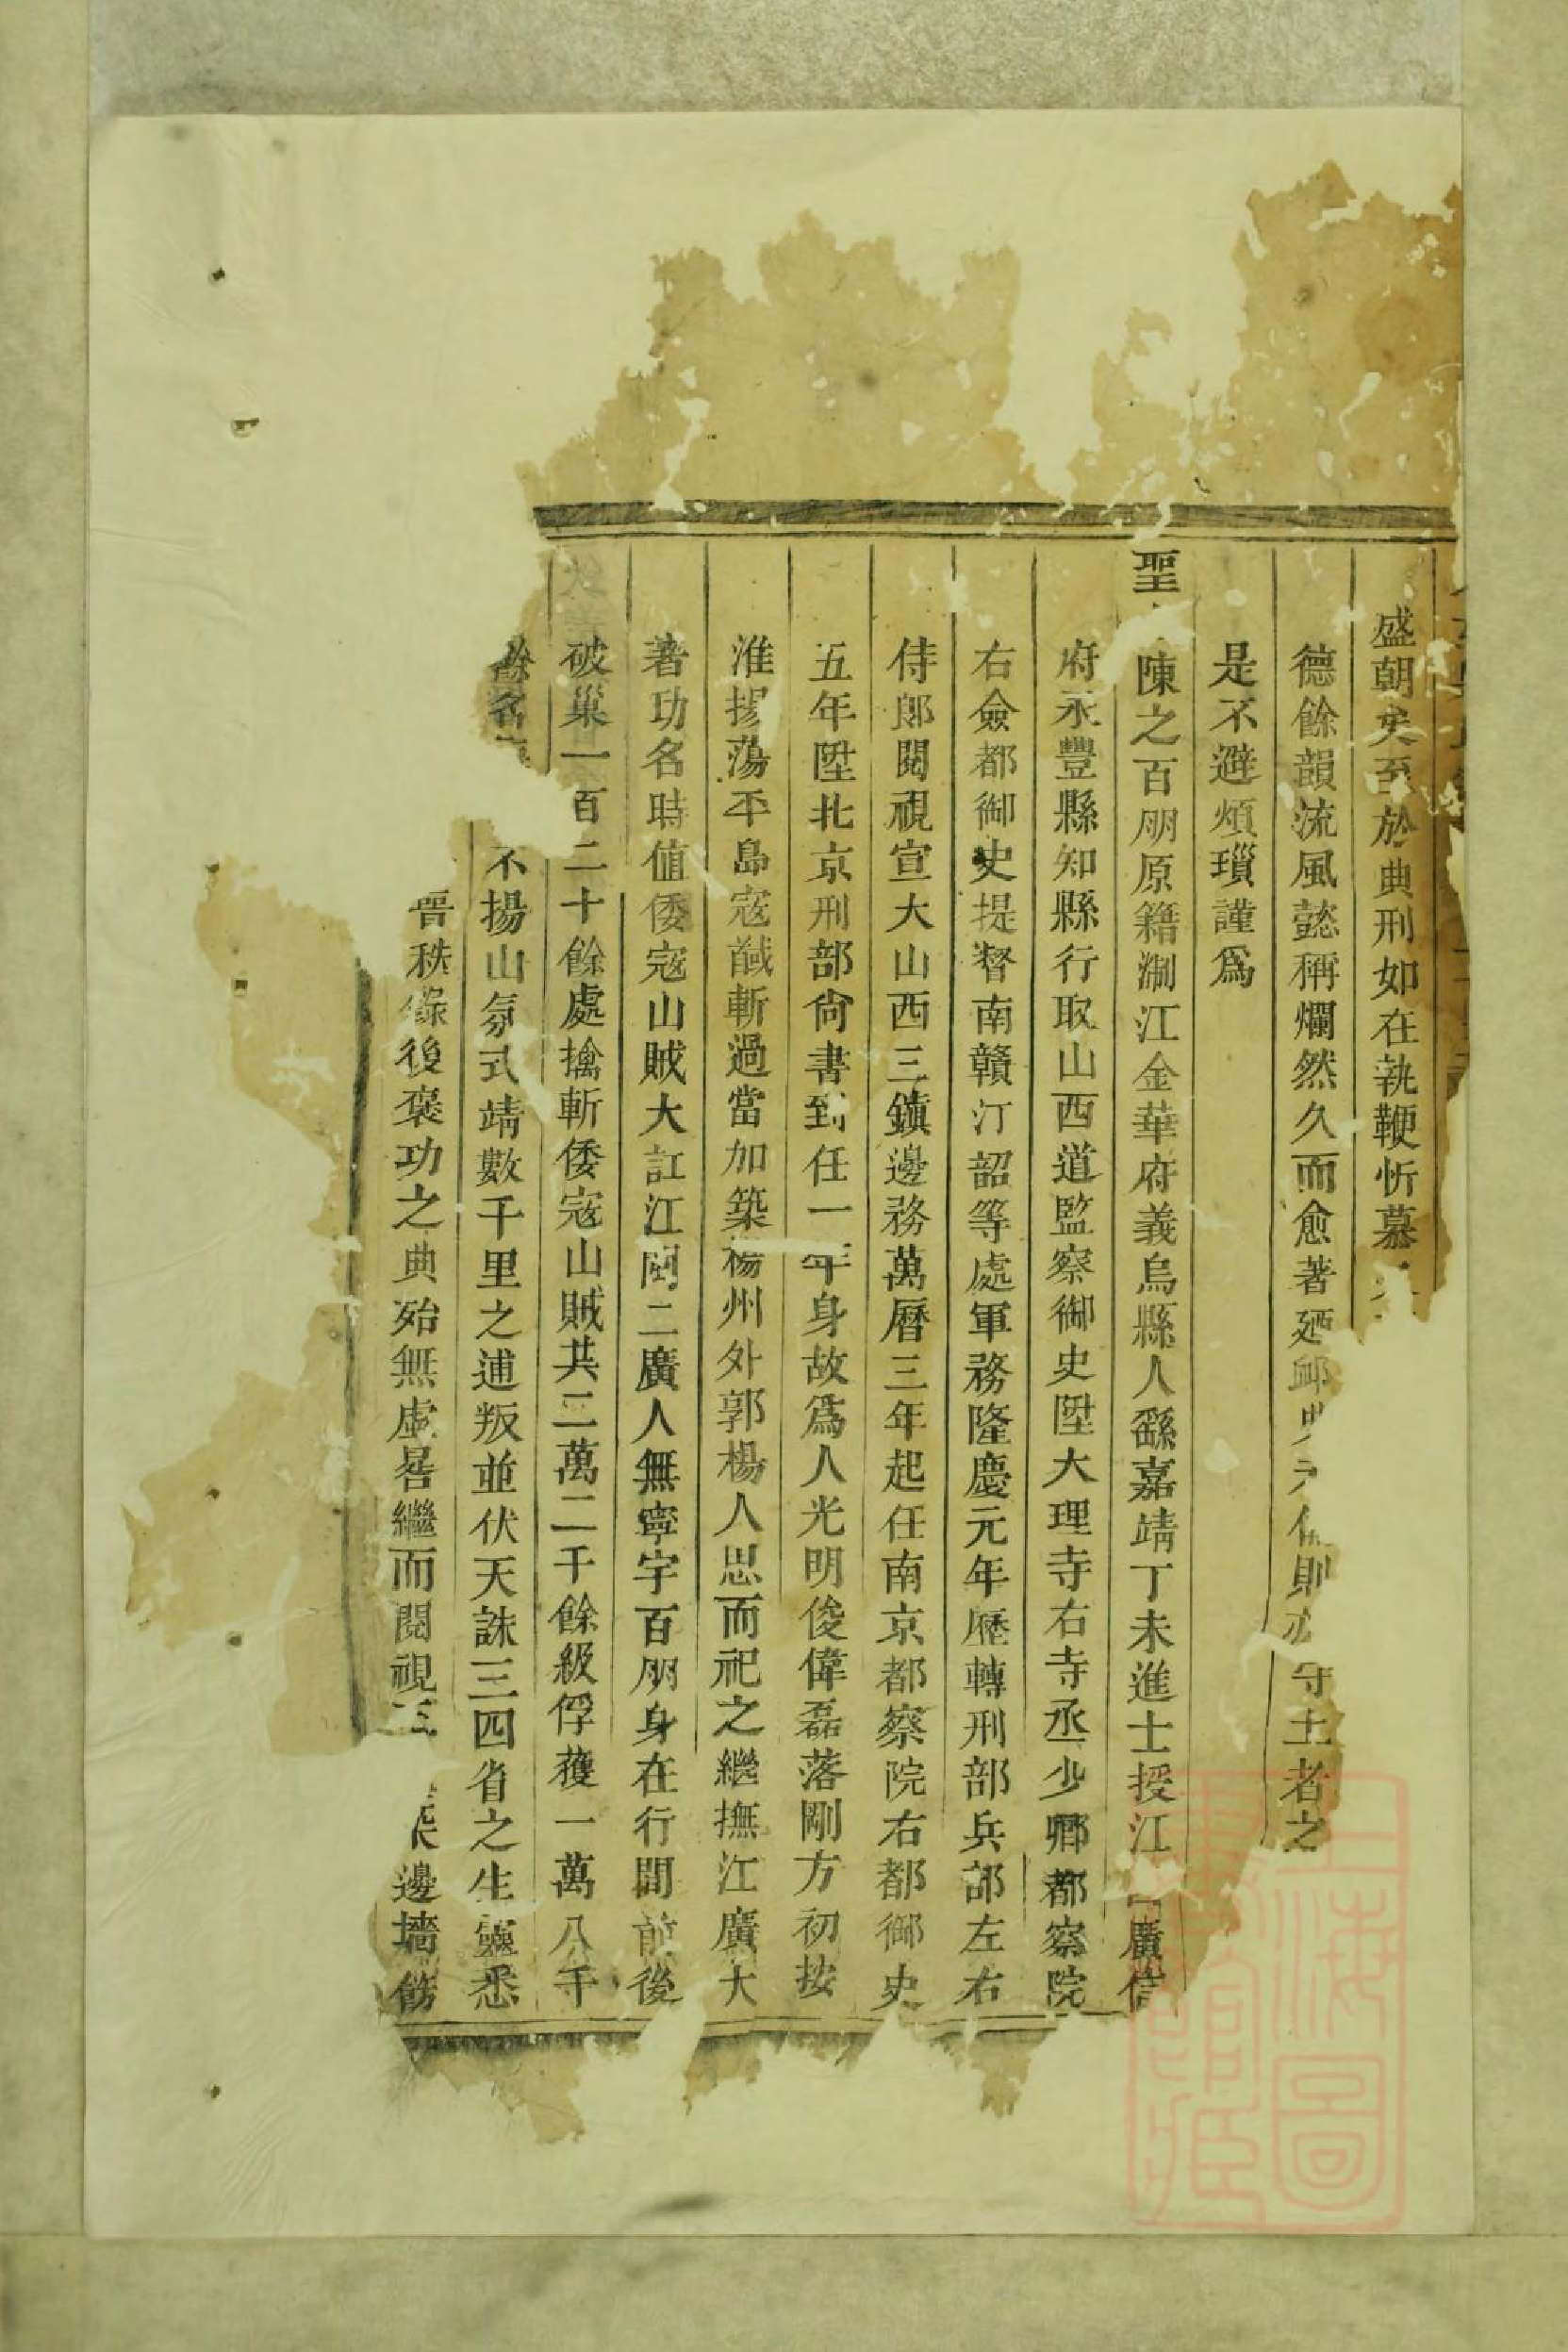 盛朝矣至於典刑如在執鞭忻慕
德餘韻流風懿稱爛然久而愈著廼則守土者之
是不避煩瑣謹爲
聖陳之百朋原籍淛江金華府義烏縣人繇嘉靖丁未進士授江廣信
府永豐縣知縣行取山西道監察御史陞大理寺右寺丞少卿都察院
右僉都御史提督南贛汀韶等處軍務隆慶元年歷轉刑部兵部左右
侍郎閱視宣大山西三鎮邊務萬曆三年起任南京都察院右都御史
五年陞北京刑部尙書到任一年身故爲人光明俊偉磊落剛方初按
淮揚蕩平島寇馘斬過當加築楊州外郭楊人思而祀之繼撫江廣大
著功名時值倭寇山賊大訌江閩二廣人無寧宇百朋身在行間前後
破巢一百二十餘處擒斬倭寇山賊共二萬二千餘級俘獲一萬八千
餘名不揚山氛式靖數千里之逋叛並伏天誅三四省之生靈悉
晉秩錄後褒功之典殆無虛晷繼而閱視三邊墻飭
上海圖書館藏